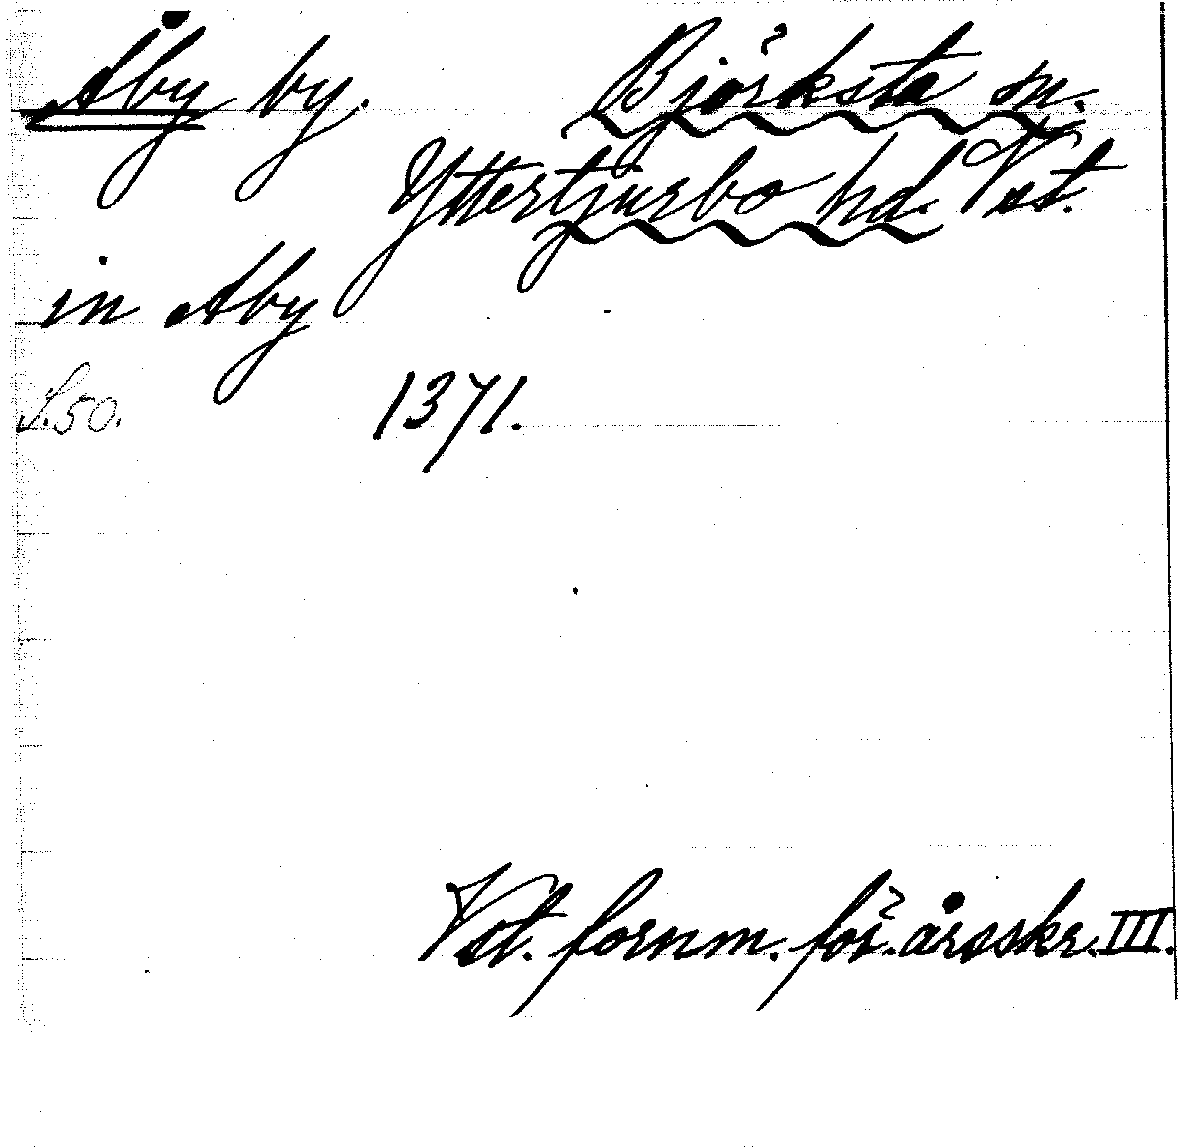 Åby by. Björksta sn.
Yttertjurbo hd. Vst.
in Aby
S. 50. 1371.
Vst. fornm. för. årsskr. III.